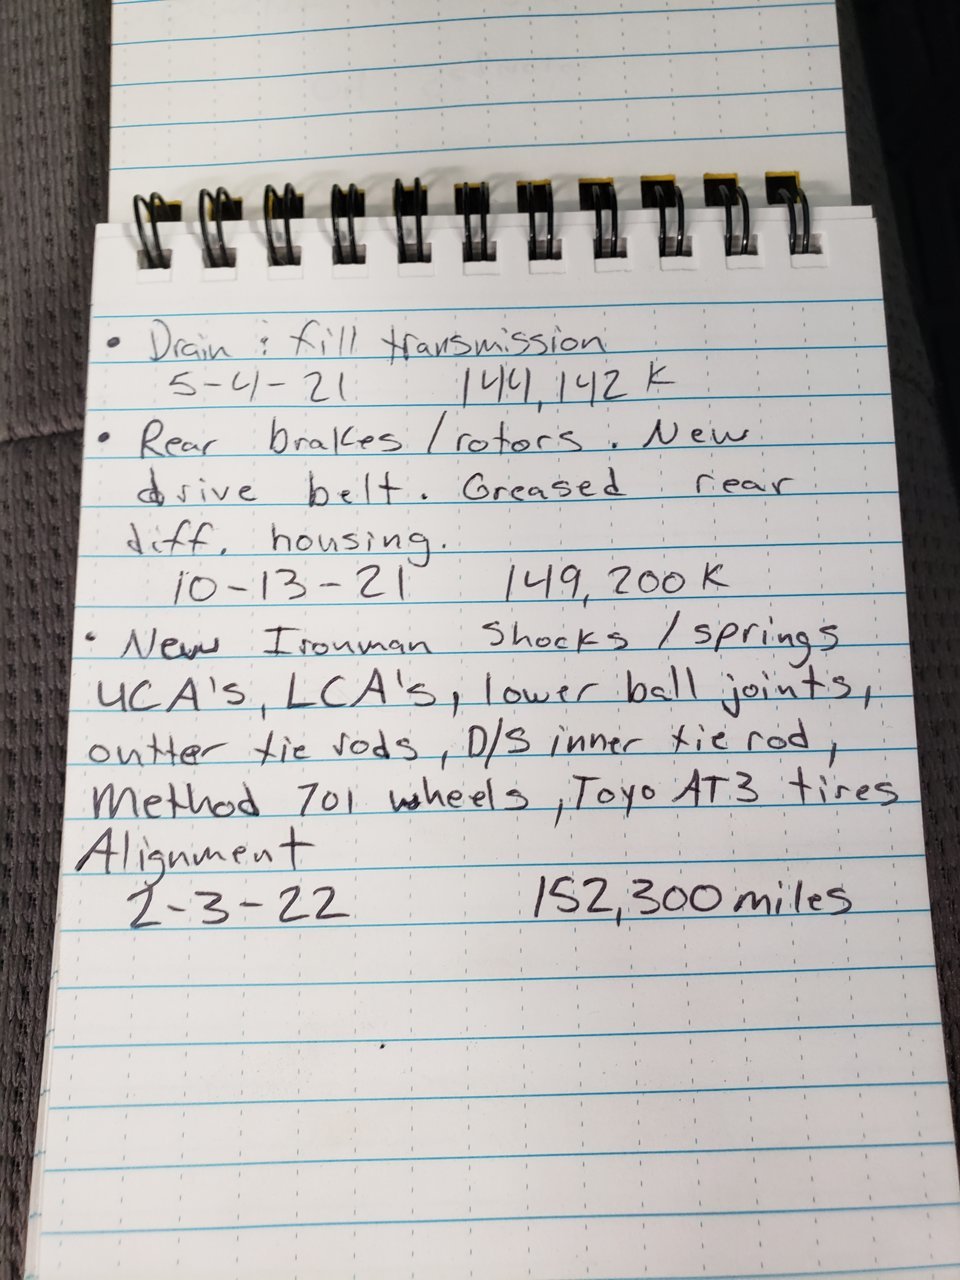 • Drain & fill transmission
5-4-21 144,142 K
• Rear brakes/rotors. New
drive belt. Greased rear
diff. housing.
10-13-21 149,200 K
• New Ironman Shocks/springs
UCA's, LCA's, lower ball joints,
outter tie rods, D/S inner tie rod,
Method 701 wheels, Toyo AT3 tires
Alignment
2-3-22 152,300 miles